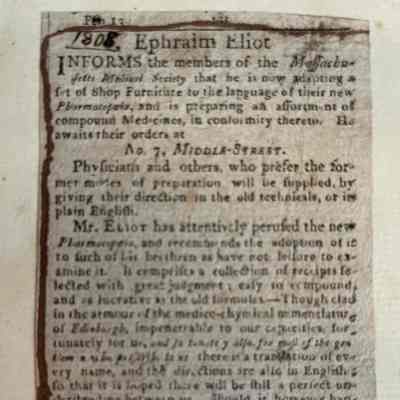 1808. Ephraim Eliot
INFORMS the members of the Massachu-
setts Medical Society that he is now adapting a
set of Shop Furniture to the language of their new
Pharmacopœia, and is preparing an assortment of
compound Medicines, in conformity thereto. He
awaits their orders at
No. 7, MIDDLE-STREET.
Physicians and others, who prefer the for-
mer modes of preparation will be supplied, by
giving their direction in the old technicals, or in
plain English.
Mr. ELIOT has attentively perused the new
Pharmacopœia, and recommends the adoption of it
to such of his brethren as have not leisure to ex-
amine it. It comprises a collection of receipts se-
lected with great judgment; easy to compound,
and as lucrative as the old formulas.—Though clad
in the armour of the medico-chymical nomenclature
of Edinburgh, impenetrable to our capacities, for-
tunately for us, and so luckily also, for most of the
there is a translation of eve-
ry name, and the directions are also in English;
so that it is hoped there will be still a perfect un-
derstanding between us. Should it however